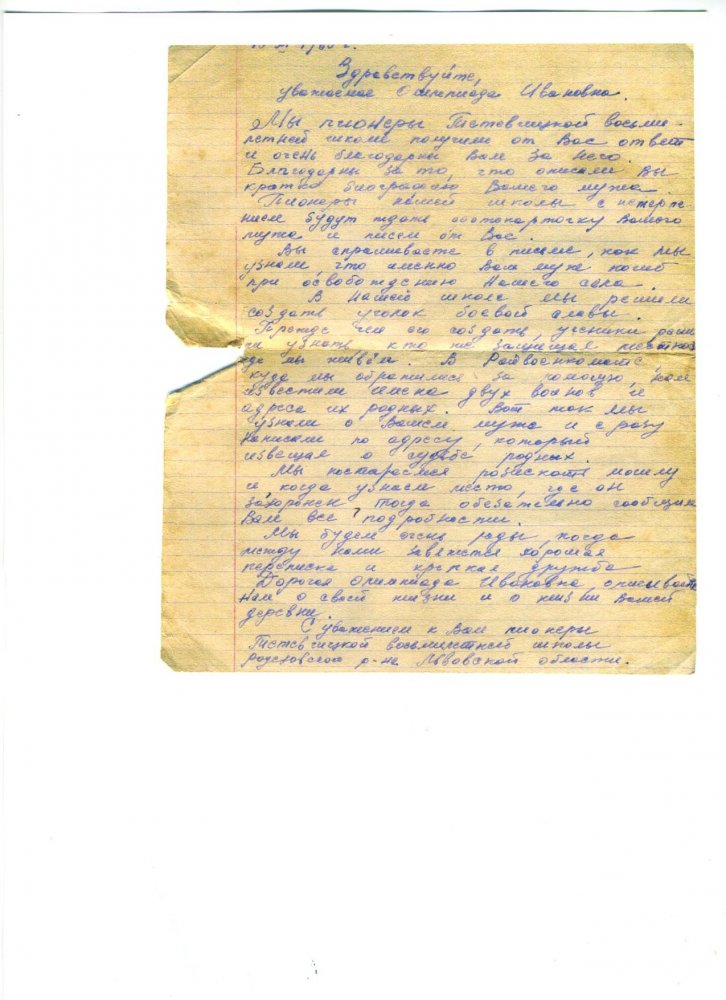 Здравствуйте,
уважаемая Олимпиада Ивановна.
Мы пионеры Тетевчицкой восьми-
летней школы получили от Вас ответ
и очень благодарны Вам за него.
Благодарны за то, что описали Вы
кратко биографию Вашего мужа.
Пионеры нашей школы с нетерпе-
нием будут ждать фотокарточку Вашего
мужа и писем от Вас.
Вы спрашиваете в письме, как мы
узнали, что именно Ваш муж погиб
при освобождению нашего села.
В нашей школе мы решили
создать уголок боевой славы.
Прежде чем его создать, ученики реши
ли узнать кто же защищал местнос
где мы живём. В Райвоенкомате,
куда мы обратились за помощью, нам
известили имена двух воинов и
адреса их родных. Вот так мы
узнали о Вашем муже и сразу
написали по адрессу, который
извещал о судьбе родных.
Мы постараемся розискать могилу
и когда узнаем место, где он
захоронен тогда обезательно сообщим
Вам все подробности.
Мы будем очень рады, когда
между нами завяжется хорошая
переписка и крепкая дружба
Дорогая Олимпиада Ивановна описывайте
нам о своей жизни и о жизни Вашей
деревни.
С уважением к Вам пионеры
Тетевчицкой восьмилетней школы
радеховского р-на Львовской области.